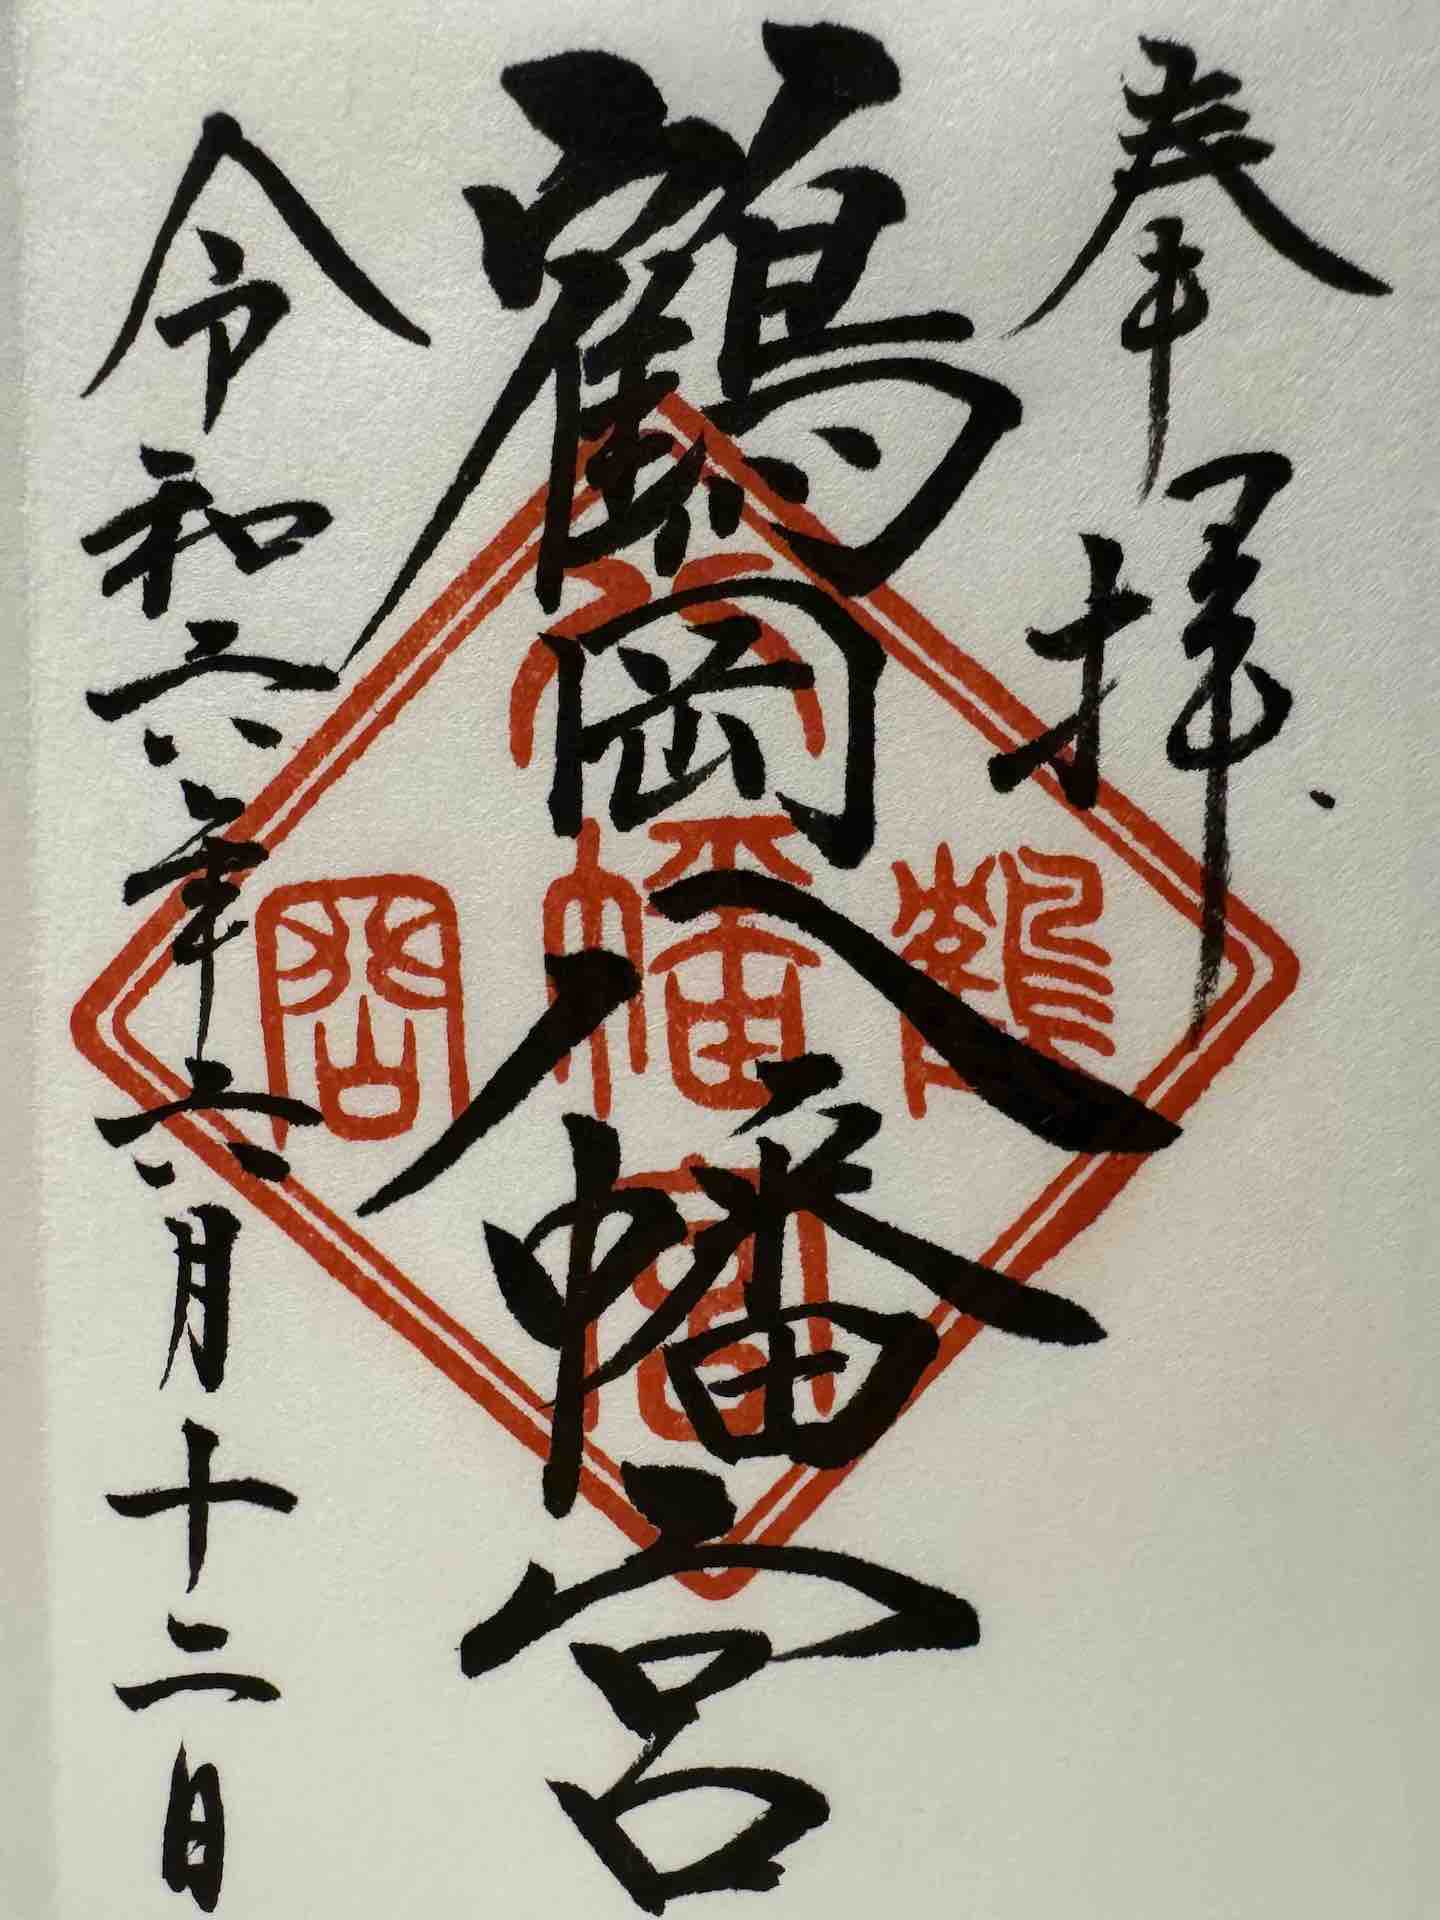 奉拝
鶴岡八幡宮
令和六年六月十二日
鶴
八幡宮
岡